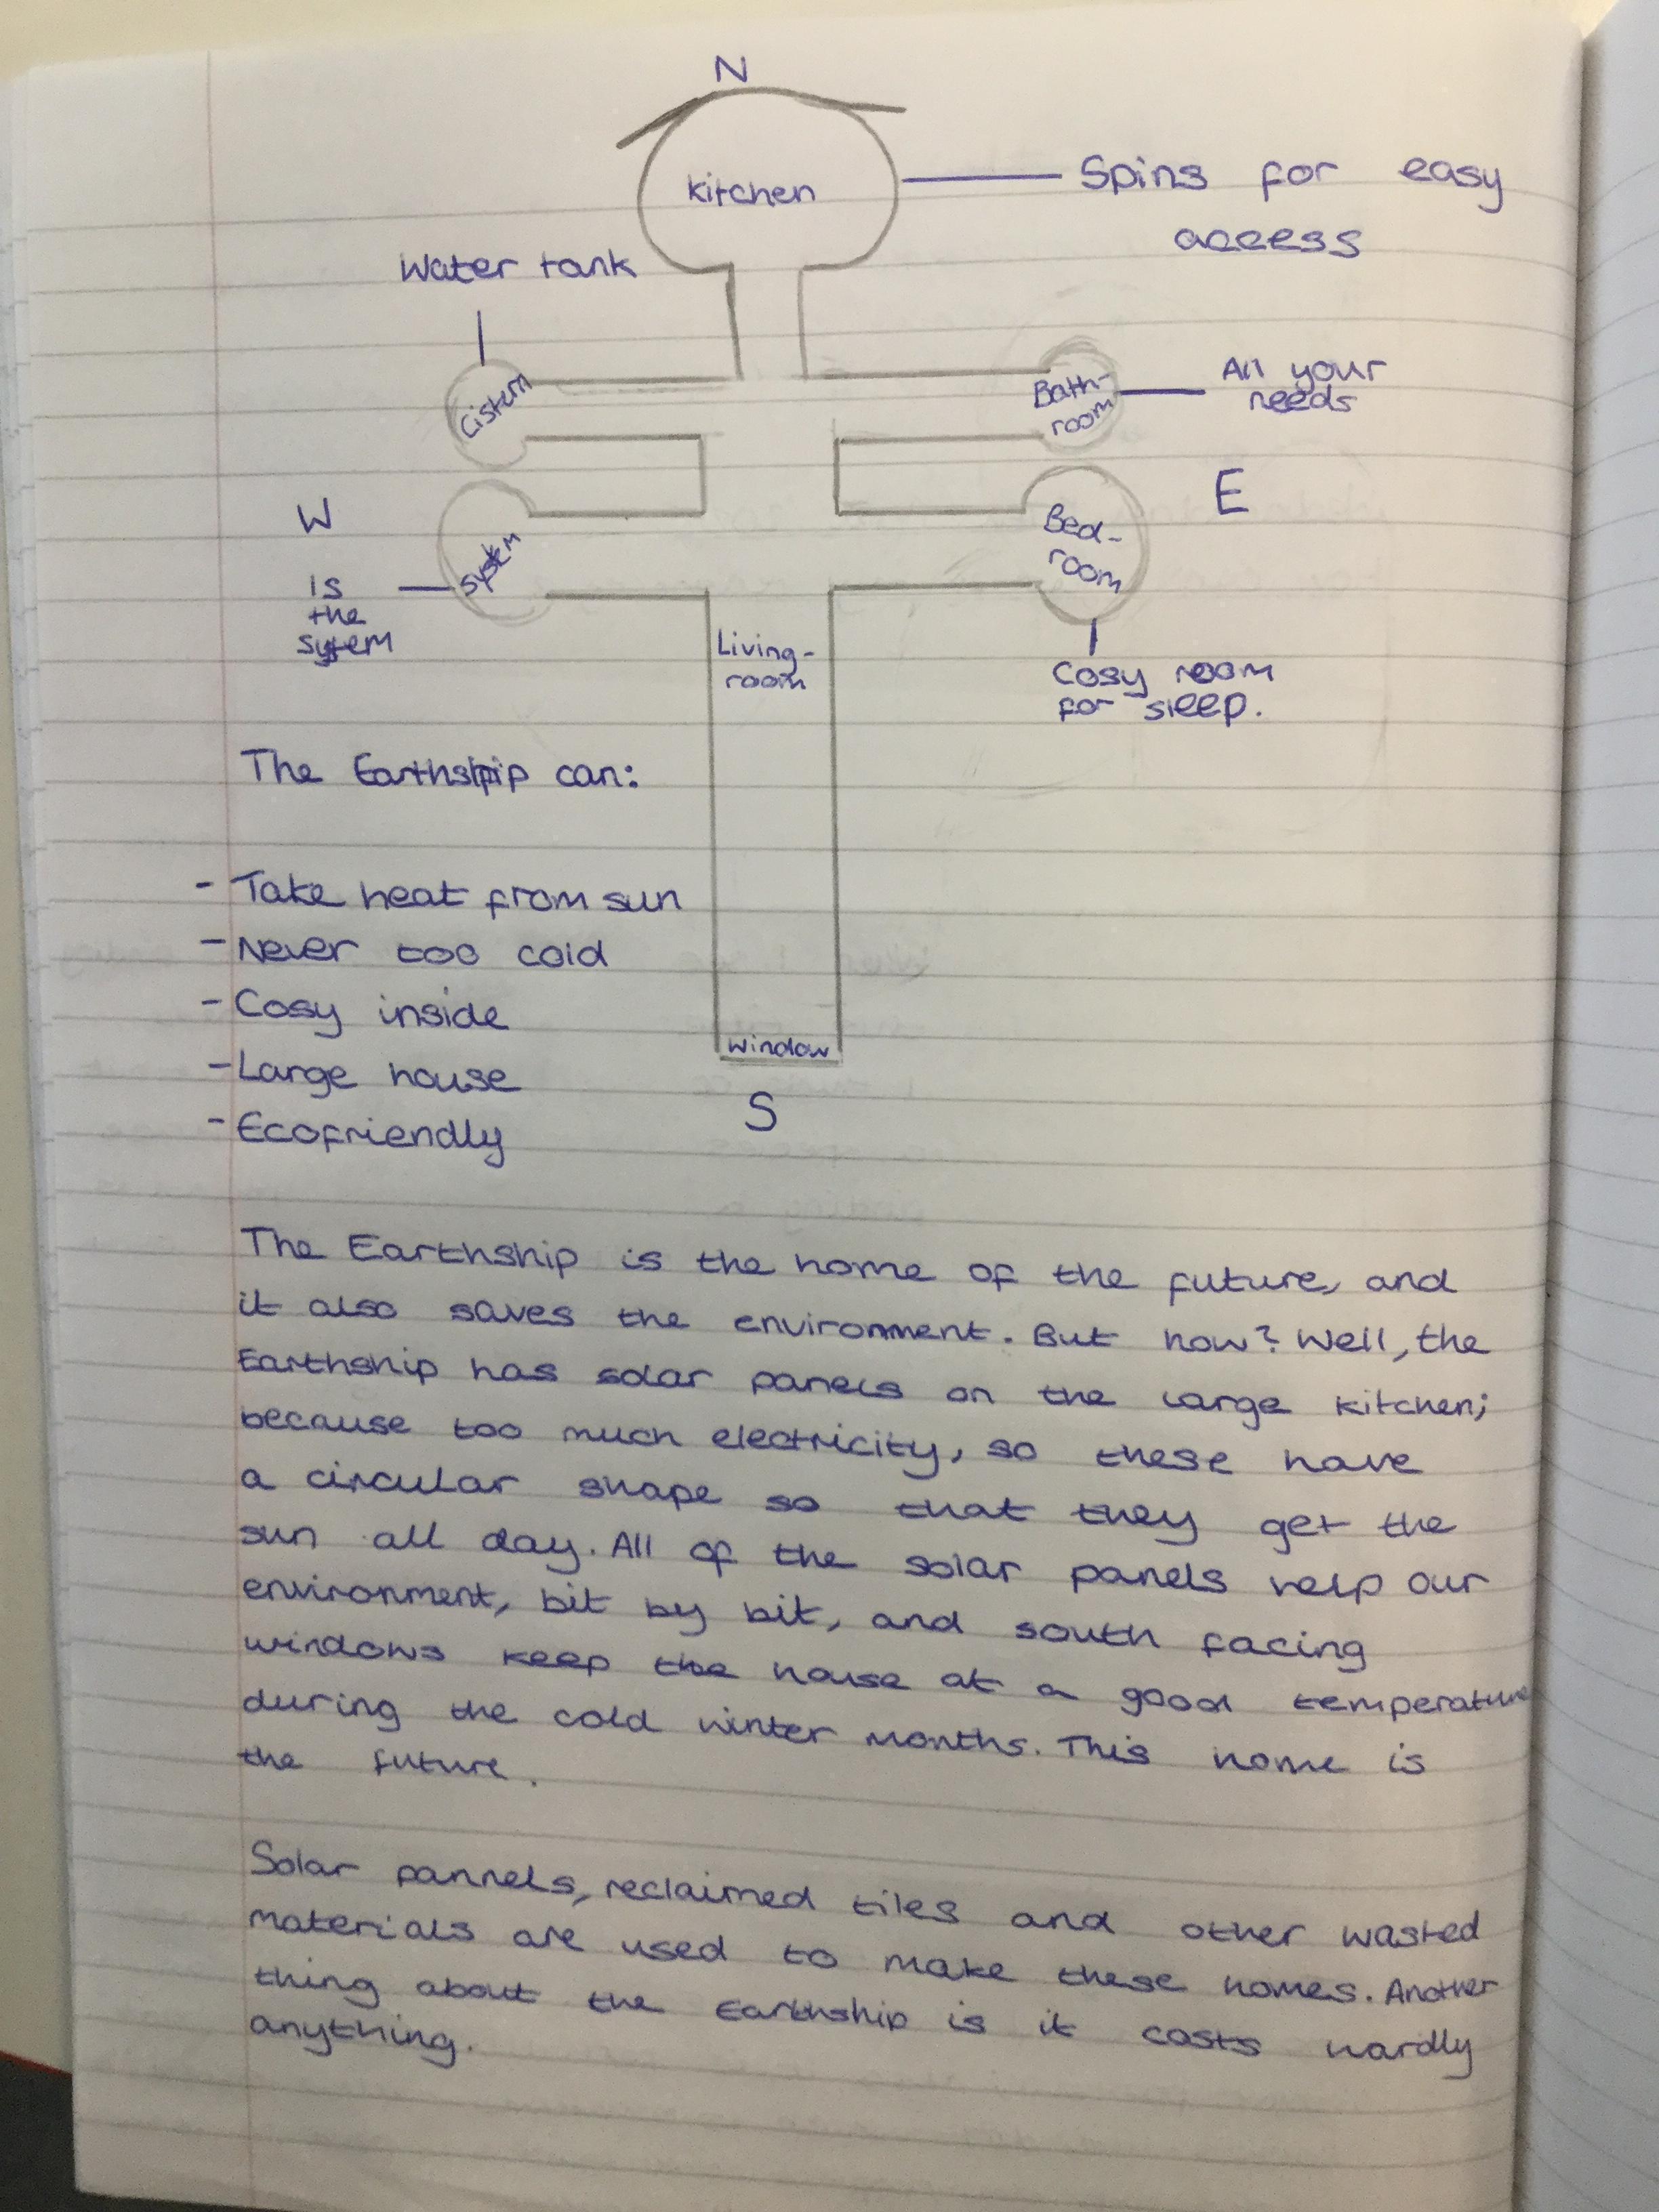 N
Kitchen
Spins for easy
access
Water tank
Cistern
Bath-
room
All your
needs
W
E
System
Bed-
room
is
the
sytem
Living-
room
Cosy room
for sleep.
The Earthship can:
- Take heat from sun
- Never too cold
- Cosy inside
- Large house
- Ecofriendly
Window
S
The Earthship is the home of the future, and
it also saves the environment. But how? Well, the
Earthship has solar panels on the large kitchen;
because too much electricity, so these have
a circular shape so that they get the
sun all day. All of the solar panels help our
environment, bit by bit, and south facing
windows keep the house at a good temperature
during the cold winter months. This home is
the future.
Solar pannels, reclaimed tiles and other wasted
materials are used to make these homes. Another
thing about the Earthship is it costs hardly
anything.